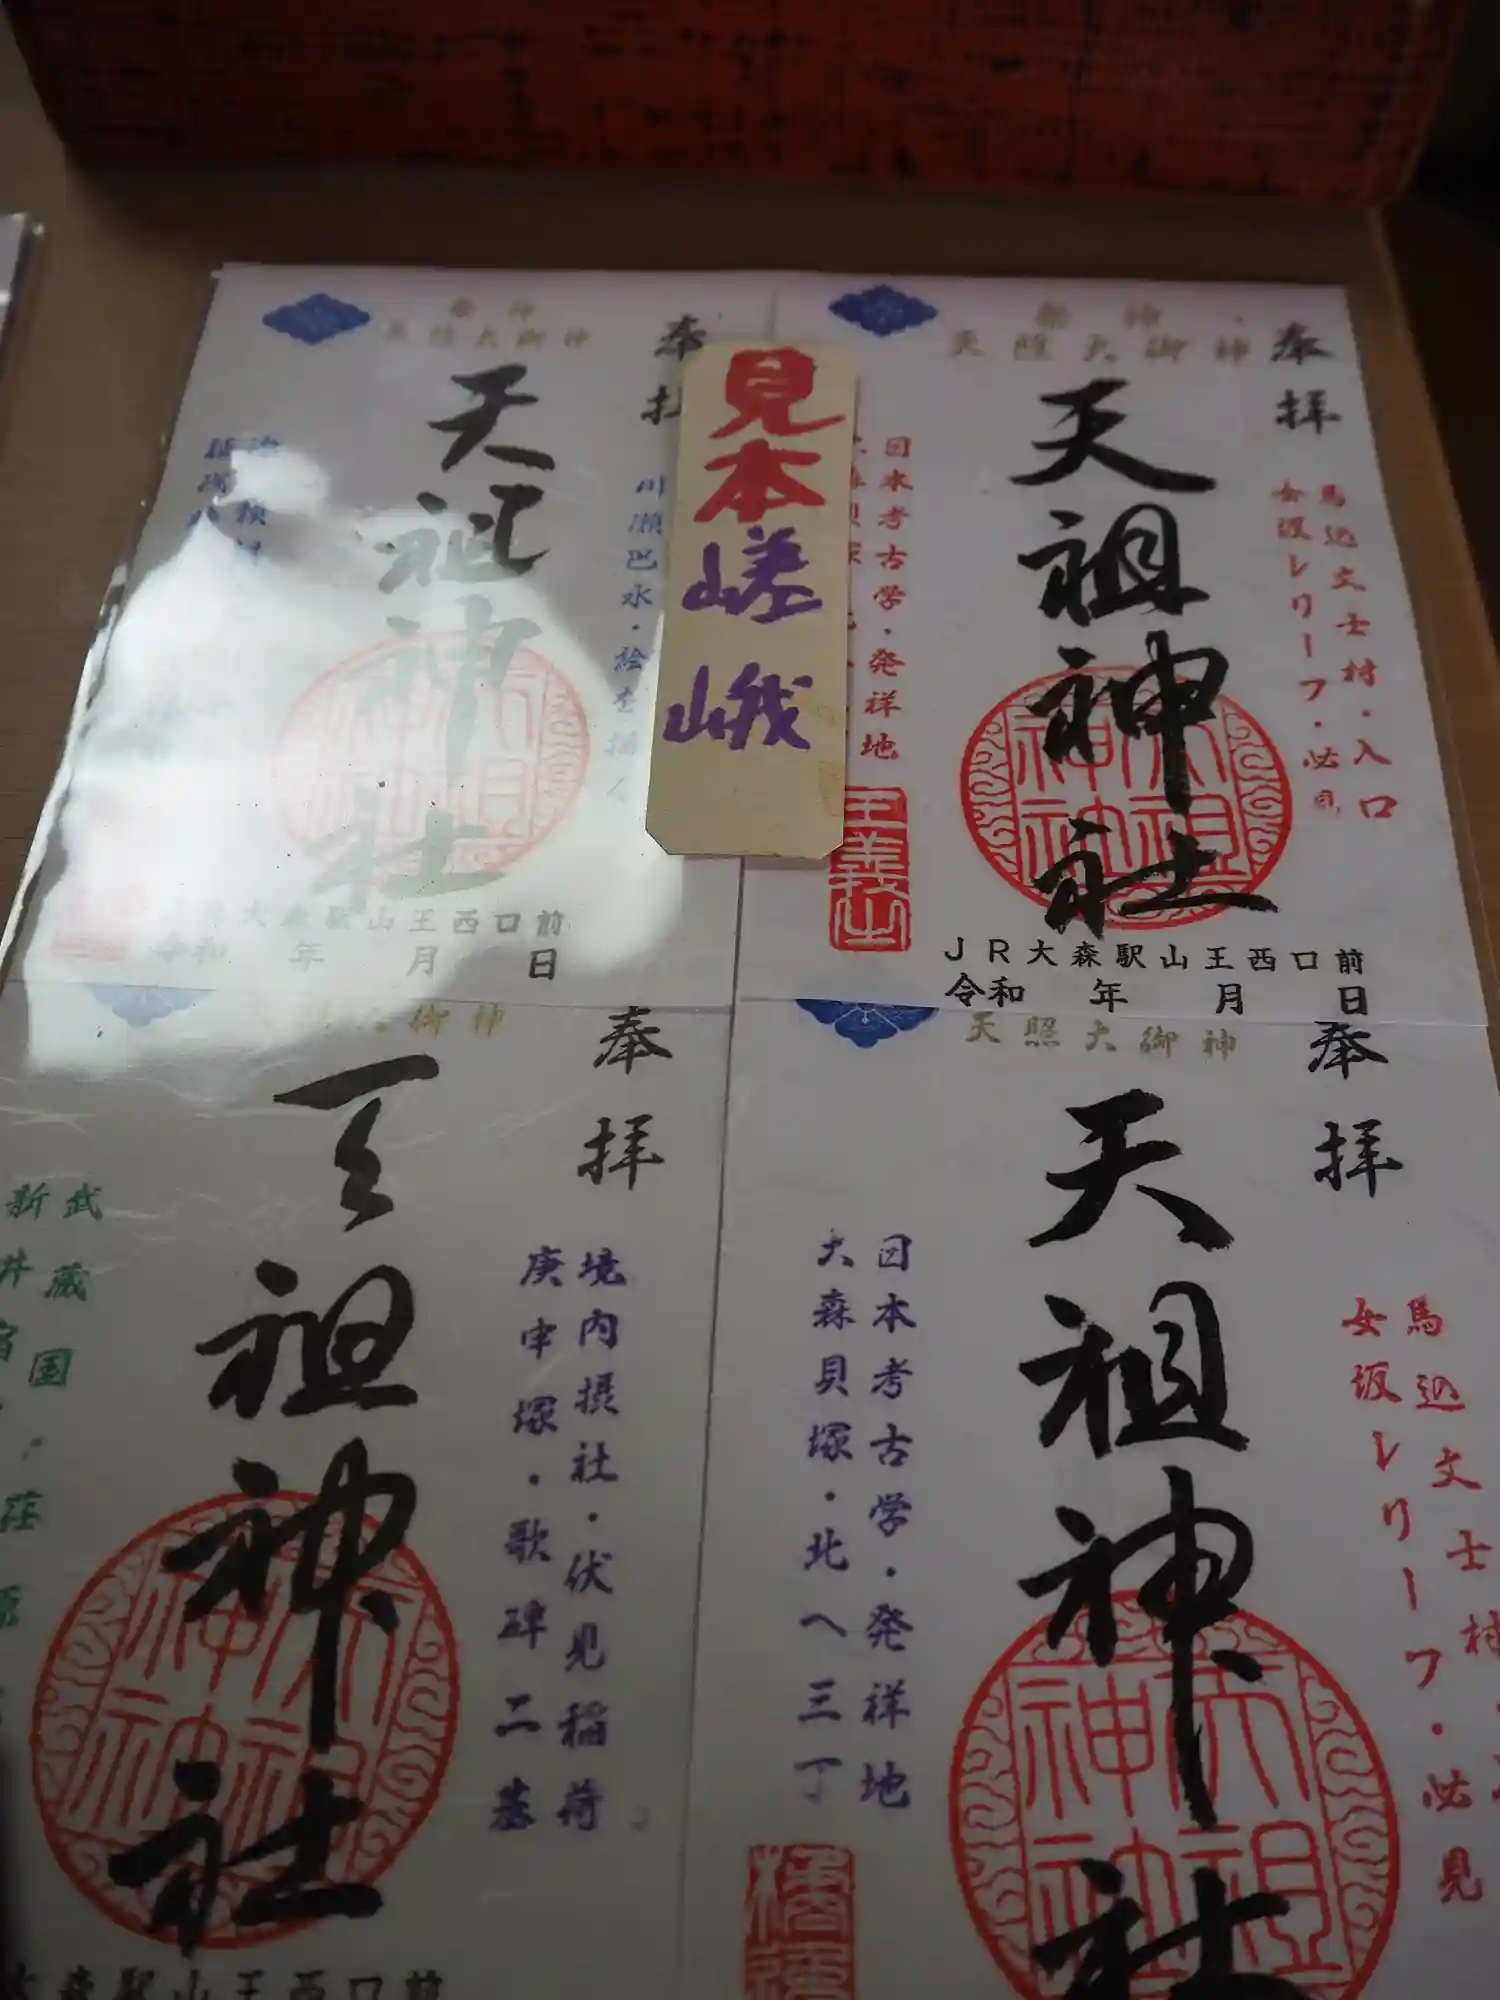 見本
嵯峨
奉拝
祭神
天照大御神
天祖神社
馬込文士村・入口
女坂レリーフ・必見
日本考古学・発祥地
王義之
JR大森駅山王西口前
令和 年 月 日
奉
祭神
天照大御神
天祖神社
川瀬巴水・絵を描く
大森駅山王西口前
令和 年 月 日
奉拝
天照大御神
天祖神社
馬込文士村
女坂レリーフ・必見
日本考古学・発祥地
大森貝塚・北へ三丁
奉拝
御神
天祖神社
境内摂社・伏見稲荷
庚申塚・歌碑二基
武蔵国
新井宿・荏原
大森駅山王西口前